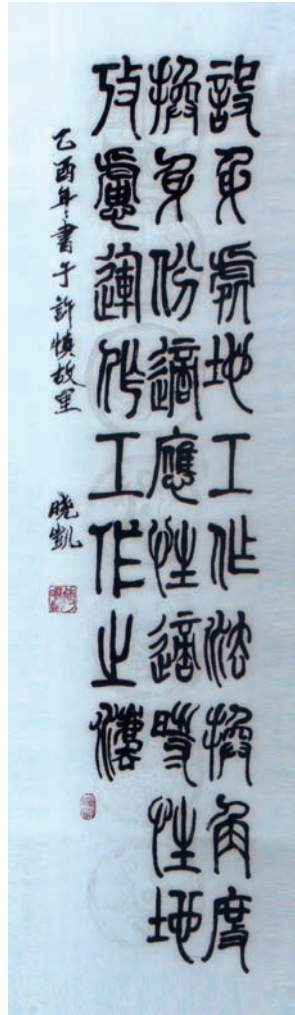 設身處地工作法換角度
換身份適應性適時性地
攷慮運作工作之灋
乙酉年書于許慎故里
曉凱